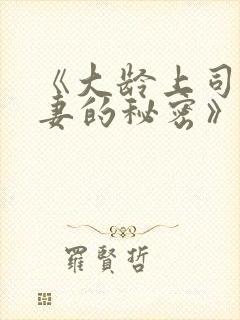 《大龄上司
妻的秘密》
羅賢哲